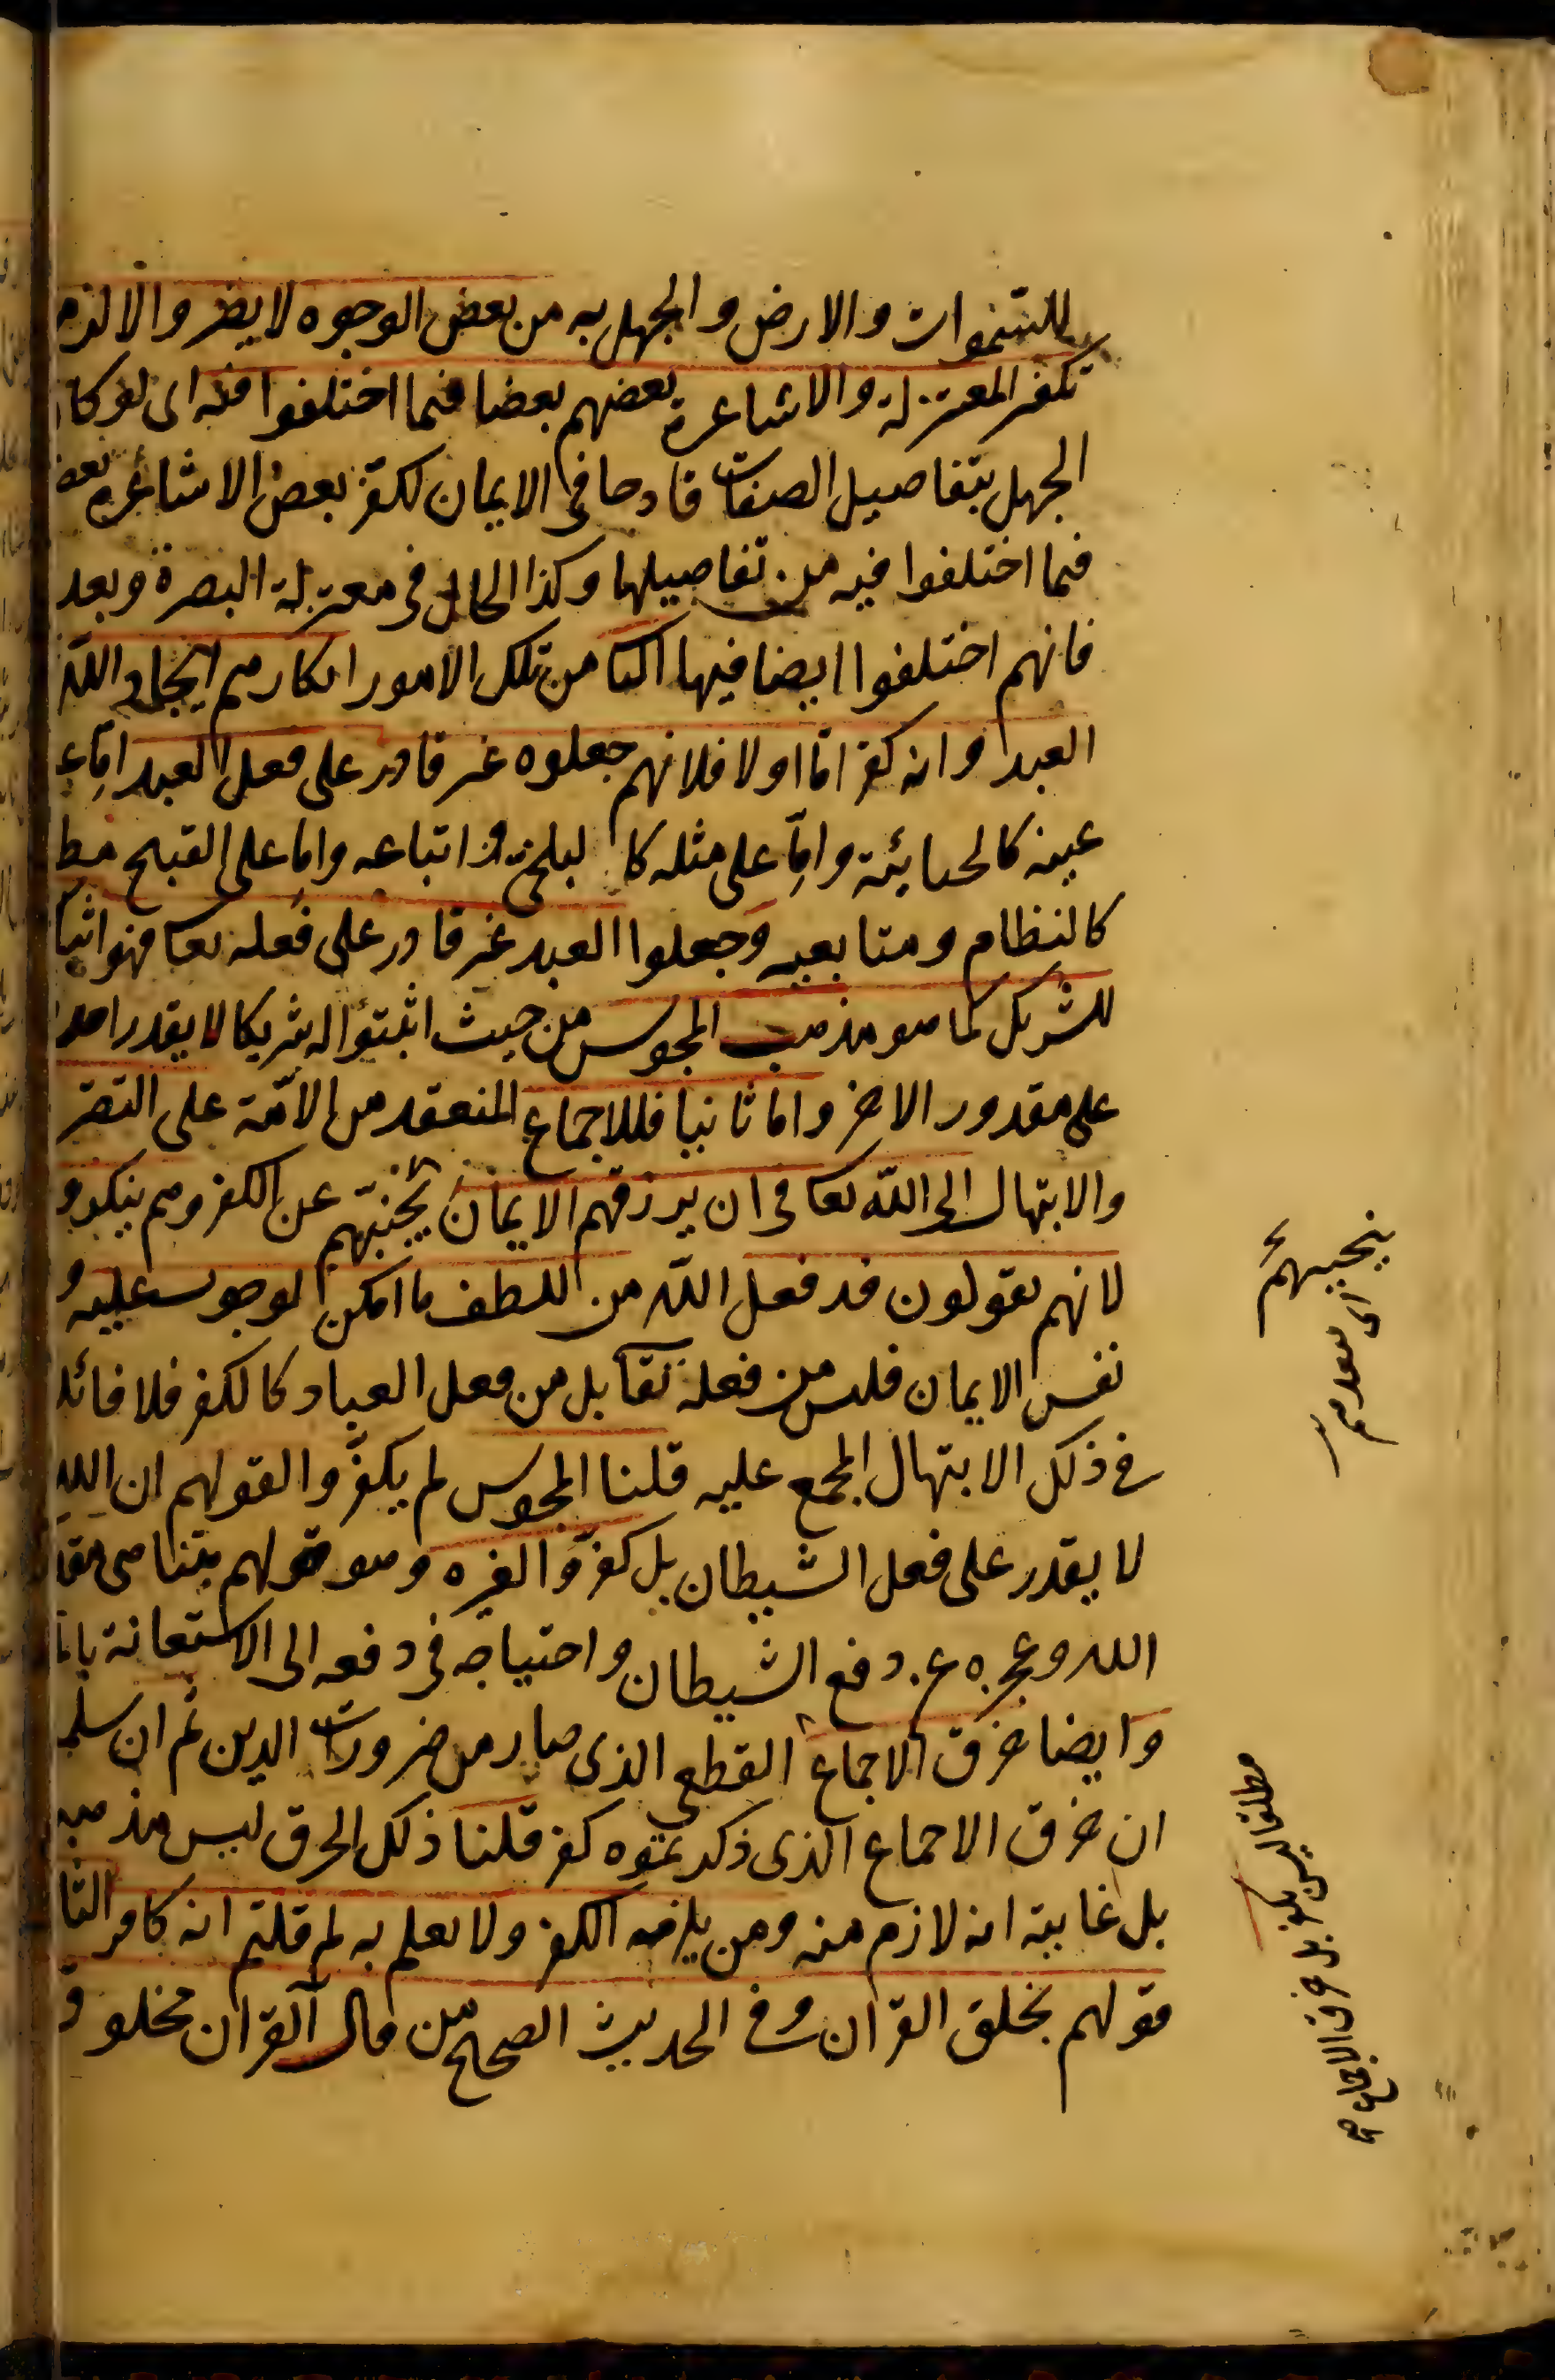 للسموات والارض والجهل به من بعض الوجوه لا يضر والا لزم
تكفير المعتزلة والاشاعرة بعضهم بعضا فيما اختلفوا فيه اى لو كان
الجهل بتفاصيل الصفات قادحا فى الايمان لكفّر بعض الاشاعرة بعض
فيما اختلفوا فيه من تفاصيلها وكذا الحال فى معتزلة البصرة وبغد
فانهم اختلفوا ايضا فيها الثا من تلك الامور انكارهم ايجاد الله
العبد وانه كفر امّا اولا فلانهم جعلوه غير قادر على فعل العبد امّا ع
عينه كالجبائية وامّا على مثله كالبلخى واتباعه واما على القبيح مط
كالنظام ومتابعيه وجعلوا العبد غير قادر على فعله تعا فهو اثبا
للشريك كما هو مذهب المجوس من حيث اثبتوا له شريكا لا يقدر احدا
على مقدور الاخر واما ثانيا فللاجماع المنعقد من الامّة على التضر
والابتهال الى الله تعالى فى ان يرزقهم الايمان يجنّبهم عن الكفر وهم ينكرو
لانهم يقولون قد فعل الله من اللطف ما امكن لوجوبه عليه و
نفس الايمان فليس من فعله تعا بل من فعل العباد كالكفر فلا فائد
فى ذلك الابتهال المجمع عليه قلنا المجوس لم يكفّروا لقولهم ان الله
لا يقدر على فعل الشيطان بل كفّروا لغيره وهو قولهم بتناهى مقد
الله وعجزه عن دفع الشيطان واحتياجه فى دفعه الى الاستعانة بالما
وايضا خرق الاجماع القطعى الذى صار من ضرورات الدين ثم ان سلم
ان خرق الاجماع الذى ذكرتموه كفر قلنا ذلك الخرق ليس مذهبه
بل غايته انه لازم منه ومن يلزمه الكفر ولا يعلم به لم قلتم انه كافر الثا
قولهم بخلق القران وفى الحديث الصحيح من قال القران مخلوق
يجنبهم
اى يبعدهم
مطلقا ليس بكفر بل خرق الاجماع